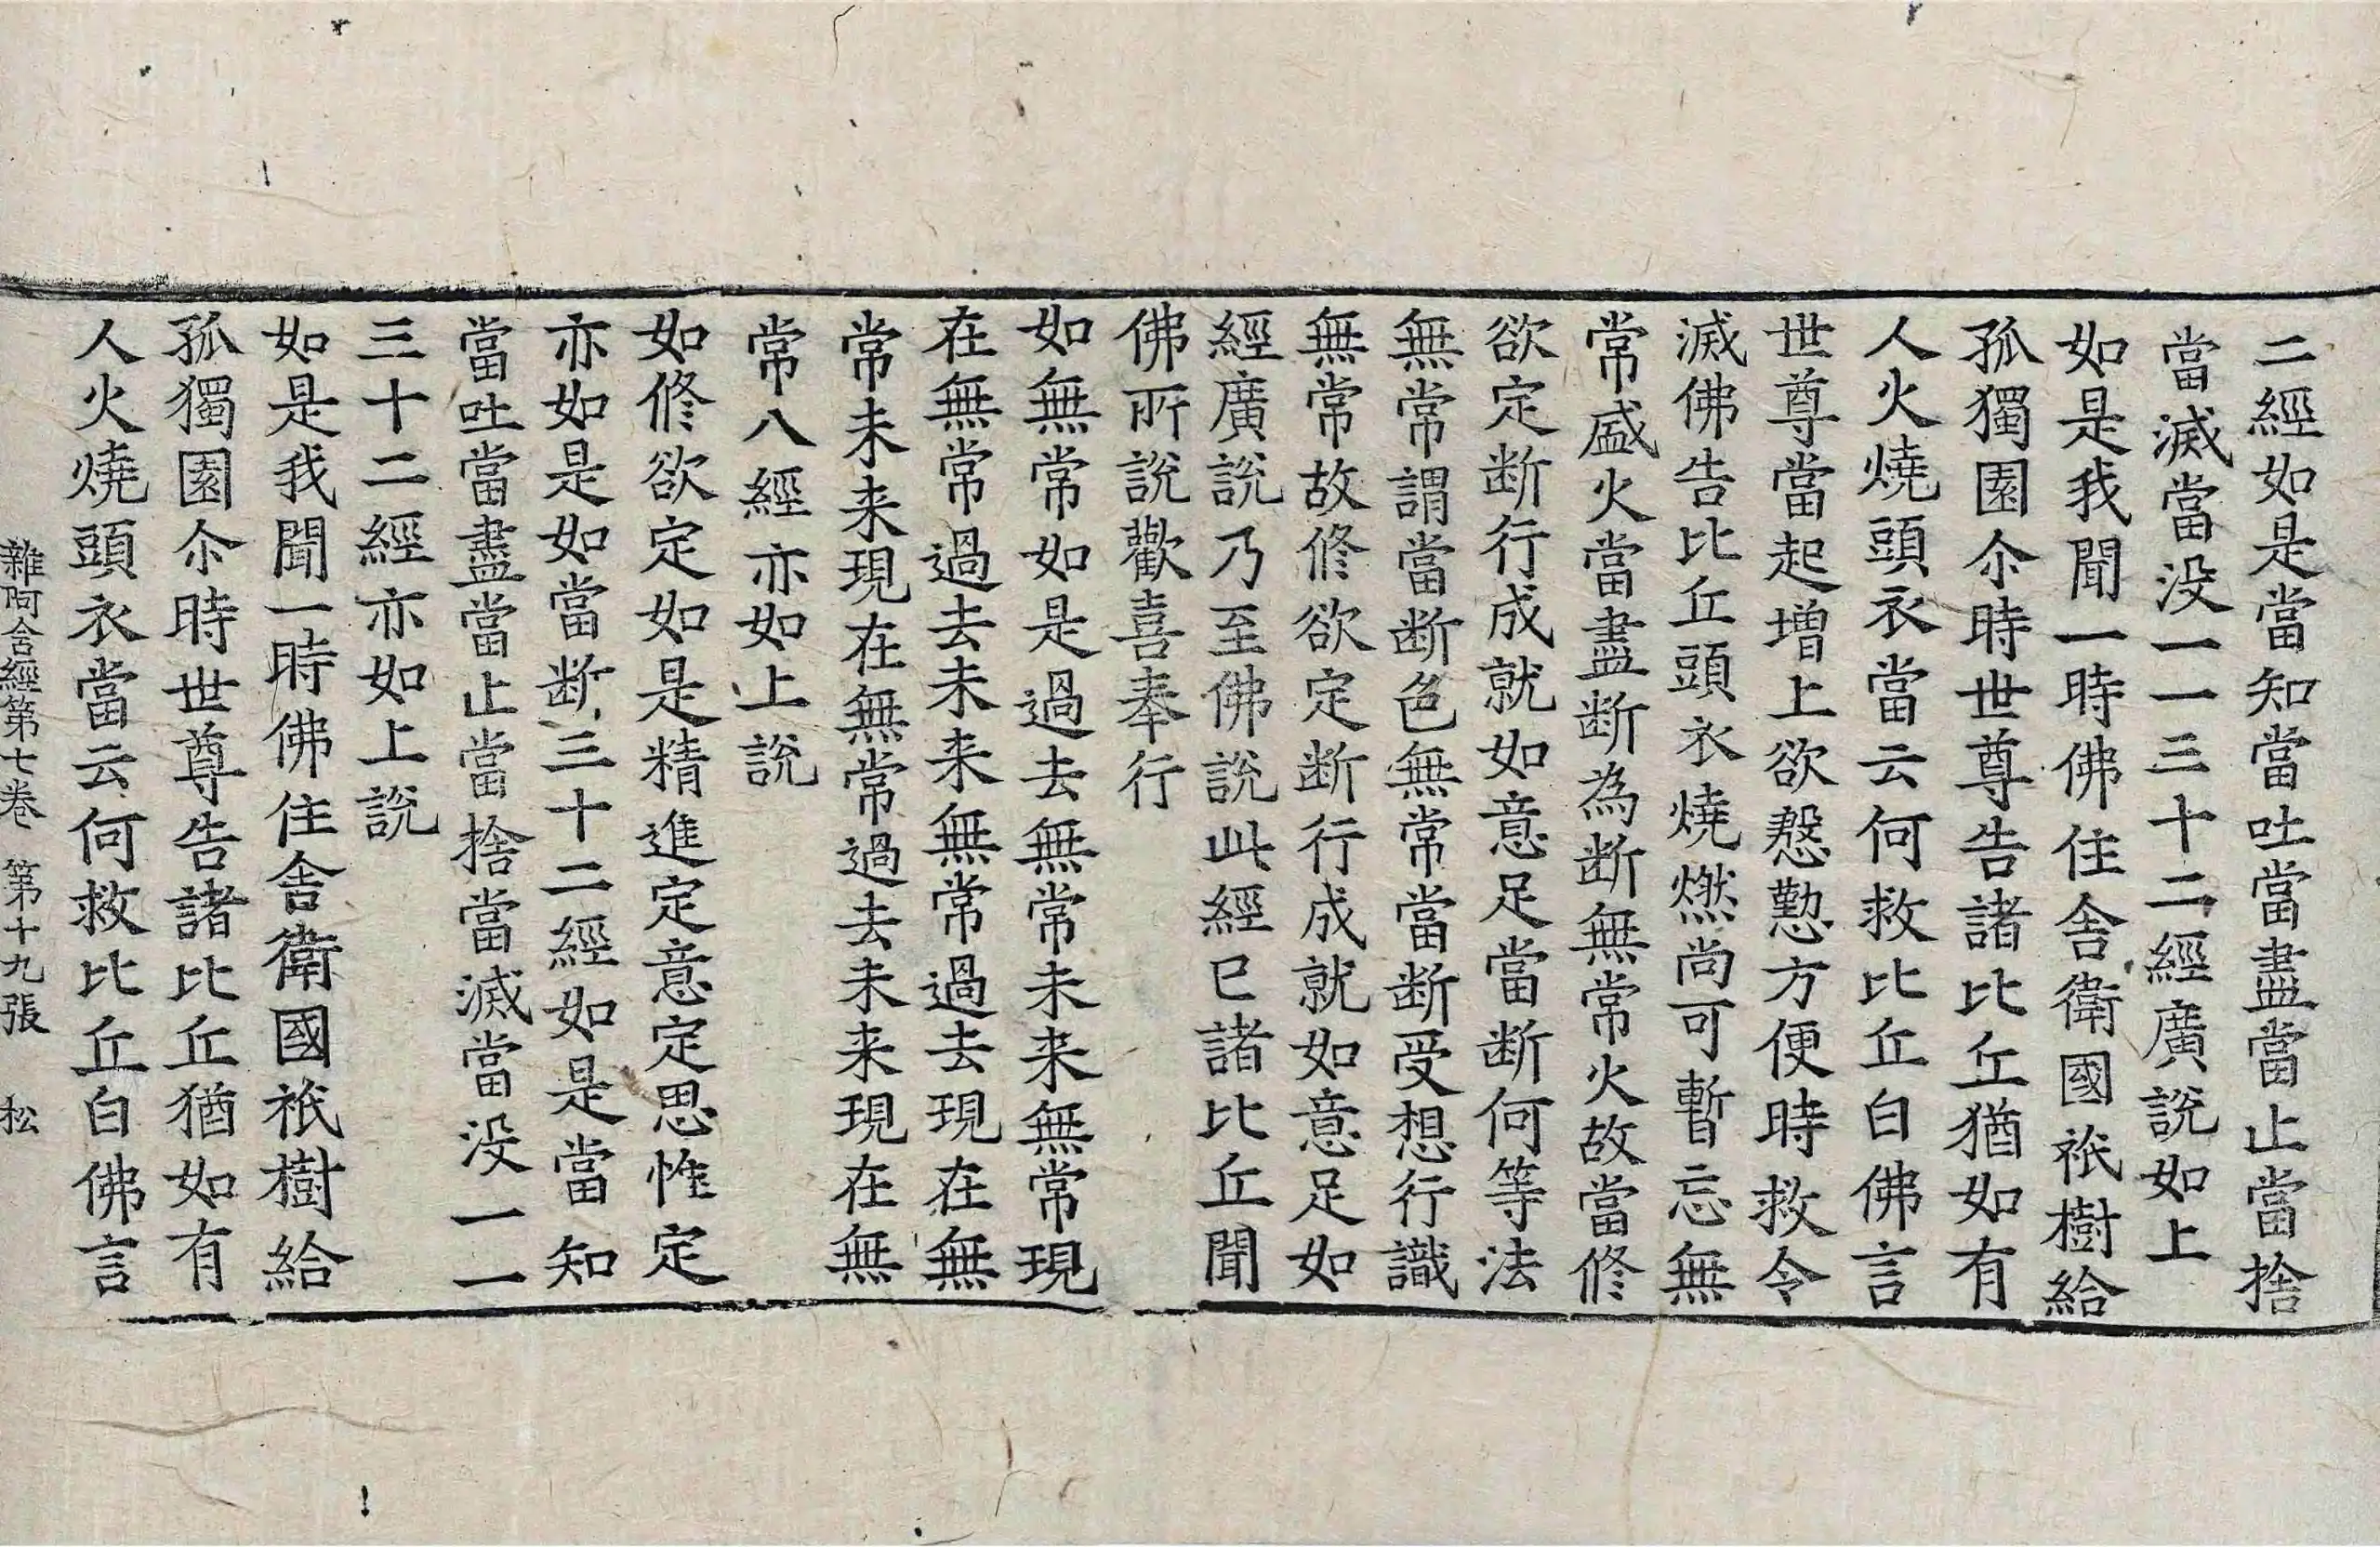 二經如是當知當吐當盡當止當捨
當滅當没一一三十二經廣說如上
如是我聞一時佛住舎衛國祇樹給
孤獨園尒時世尊告諸比丘猶如有
人火燒頭衣當云何救比丘白佛言
世尊當起增上欲慇懃方便時救令
滅佛告比丘頭衣燒燃尚可暫忘無
常盛火當盡断為断無常火故當修
欲定断行成就如意足當断何等法
無常謂當断色無常當断受想行識
無常故修欲定断行成就如意足如
經廣說乃至佛說此經已諸比丘聞
佛所說歡喜奉行
如無常如是過去無常未来無常現
在無常過去未来無常過去現在無
常未来現在無常過去未来現在無
常八經亦如上說
如修欲定如是精進定意定思惟定
亦如是如當断三十二經如是當知
當吐當盡當止當捨當滅當没一一
三十二經亦如上說
如是我聞一時佛住舎衛國祇樹給
孤獨園尒時世尊告諸比丘猶如有
人火燒頭衣當云何救比丘白佛言
雜阿含經第七巻 第十九張 松